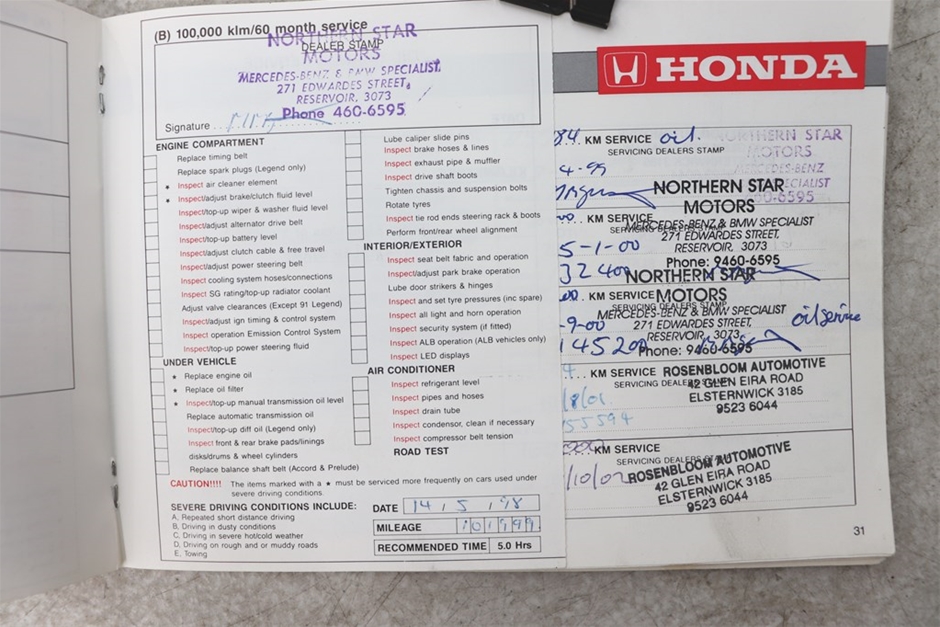 (B) 100,000 klm/60 month service
DEALER STAMP
NORTHERN STAR
MOTORS
MERCEDES-BENZ & BMW SPECIALIST,
271 EDWARDES STREET,
RESERVOIR, 3073
Phone 460-6595
Signature
ENGINE COMPARTMENT
Replace timing belt
Replace spark plugs (Legend only)
★ Inspect air cleaner element
★ Inspect/adjust brake/clutch fluid level
Inspect/top-up wiper & washer fluid level
Inspect/adjust alternator drive belt
Inspect/top-up battery level
Inspect/adjust clutch cable & free travel
Inspect/adjust power steering belt
Inspect cooling system hoses/connections
Inspect SG rating/top-up radiator coolant
Adjust valve clearances (Except 91 Legend)
Inspect/adjust ign timing & control system
Inspect operation Emission Control System
Inspect/top-up power steering fluid
UNDER VEHICLE
★ Replace engine oil
★ Replace oil filter
★ Inspect/top-up manual transmission oil level
Replace automatic transmission oil
Inspect/top-up diff oil (Legend only)
Inspect front & rear brake pads/linings
disks/drums & wheel cylinders
Replace balance shaft belt (Accord & Prelude)
Lube caliper slide pins
Inspect brake hoses & lines
Inspect exhaust pipe & muffler
Inspect drive shaft boots
Tighten chassis and suspension bolts
Rotate tyres
Inspect tie rod ends steering rack & boots
Perform front/rear wheel alignment
INTERIOR/EXTERIOR
Inspect seat belt fabric and operation
Inspect/adjust park brake operation
Lube door strikers & hinges
Inspect and set tyre pressures (inc spare)
Inspect all light and horn operation
Inspect security system (if fitted)
Inspect ALB operation (ALB vehicles only)
Inspect LED displays
AIR CONDITIONER
Inspect refrigerant level
Inspect pipes and hoses
Inspect drain tube
Inspect condensor, clean if necessary
Inspect compressor belt tension
ROAD TEST
CAUTION!!!! The items marked with a ★ must be serviced more frequently on cars used under
severe driving conditions.
SEVERE DRIVING CONDITIONS INCLUDE:
A, Repeated short distance driving
B, Driving in dusty conditions
C, Driving in severe hot/cold weather
D, Driving on rough and or muddy roads
E. Towing
DATE 14 / 5 / 98
MILEAGE 101999
RECOMMENDED TIME 5.0 Hrs
HONDA
KM SERVICE oil.
SERVICING DEALERS STAMP
NORTHERN STAR
MOTORS
4-99
KM SERVICE
NORTHERN STAR
MOTORS
MERCEDES-BENZ & BMW SPECIALIST
271 EDWARDES STREET,
RESERVOIR, 3073
Phone: 9460-6595
5-1-00
32400
KM SERVICE
NORTHERN STAR
MOTORS
SERVICING DEALERS STAMP
MERCEDES-BENZ & BMW SPECIALIST
271 EDWARDES STREET,
RESERVOIR, 3073
Phone: 9460-6595
-9-00
145200
oil service
KM SERVICE
SERVICING DEALERS STAMP
ROSENBLOOM AUTOMOTIVE
42 GLEN EIRA ROAD
ELSTERNWICK 3185
9523 6044
155594
KM SERVICE
SERVICING DEALERS STAMP
ROSENBLOOM AUTOMOTIVE
42 GLEN EIRA ROAD
ELSTERNWICK 3185
9523 6044
/10/02
31